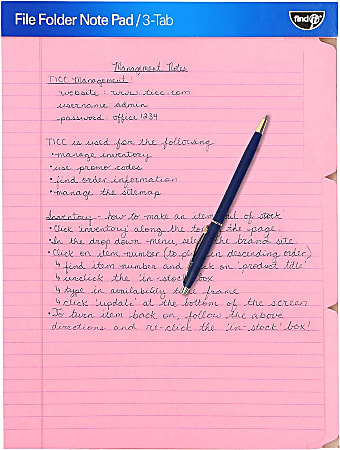 File Folder Note Pad / 3-Tab
find It
Management Notes
TICC Management!
website: www.ticc.com
username: admin
password: office1234
TICC is used for the following
• manage inventory
• use promo codes
• find order information
• manage the sitemap
Inventory - how to make an item out of stock
• Click 'inventory' along the top of the page
• In the drop down menu, select the brand site
• Click on item number (to place in descending order)
↳ find item number and click on 'product title'
↳ unclick the 'in-stock' box
↳ type in availability time frame
↳ click 'update' at the bottom of the screen
• To turn item back on, follow the above
directions and re-click the 'in-stock' box!